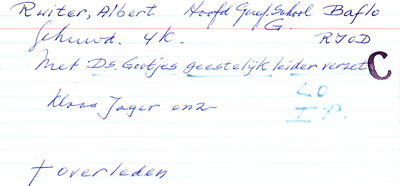 Ruiter, Albert Hoofd Geref. School Baflo
G.
Gehuwd. 4K. RYOD
Met Ds. Gootjes geestelijk leider verzet C
Klaas Jager enz LO
I.P.
† overleden